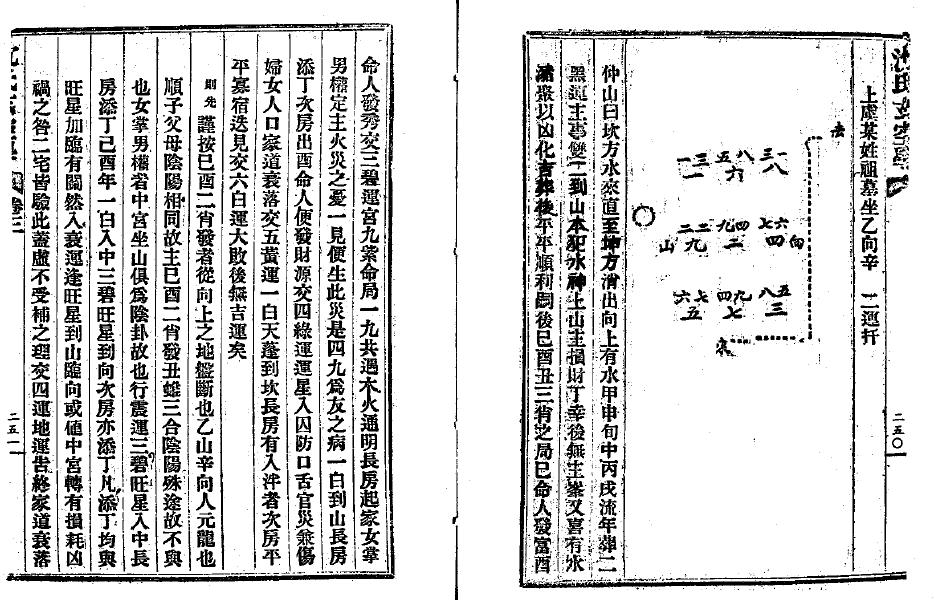 沈氏玄空學
二五〇
上虞某姓祖墓坐乙向辛　二運扦
去
一三　五八　三一
一　六　八
二二　九四　七六
山　九　二　四　向
六七　四九　八五
五　七　三
來
仲山曰坎方水來直至坤方消出向上有水甲申旬中丙戌流年葬二
黑運主事雙二到山本犯水神上山主損財丁幸後無主峯又喜有水
諸聚以凶化吉葬後平平順利嗣後巳酉丑三肖之局巳命人發富酉
命人發秀交三碧運宮九紫命局一九共遇木火通明長房起家女掌
男權定主火災之憂一見便生此災是四九為友之病一白到山長房
添丁次房出酉命人便發財源交四綠運運星入囚防口舌官災兼傷
婦女人口家道衰落交五黃運一白天蓬到坎長房有入泮者次房平
平寡宿迭見交六白運大敗後無吉運矣
則先　謹按巳酉二肖發者從向上之地盤斷也乙山辛向人元龍也
順子父母陰陽相同故主巳酉二肖發丑雖三合陰陽殊途故不與
也女掌男權者中宮坐山俱為陰卦故也行震運三碧旺星入中長
房添丁己酉年一白入中三碧旺星到向次房亦添丁凡添丁均與
旺星加臨有關然入衰運逢旺星到山臨向或值中宮轉有損耗凶
禍之咎二宅皆驗此蓋虛不受補之理交四運地運告終家道衰落
卷三
二五一